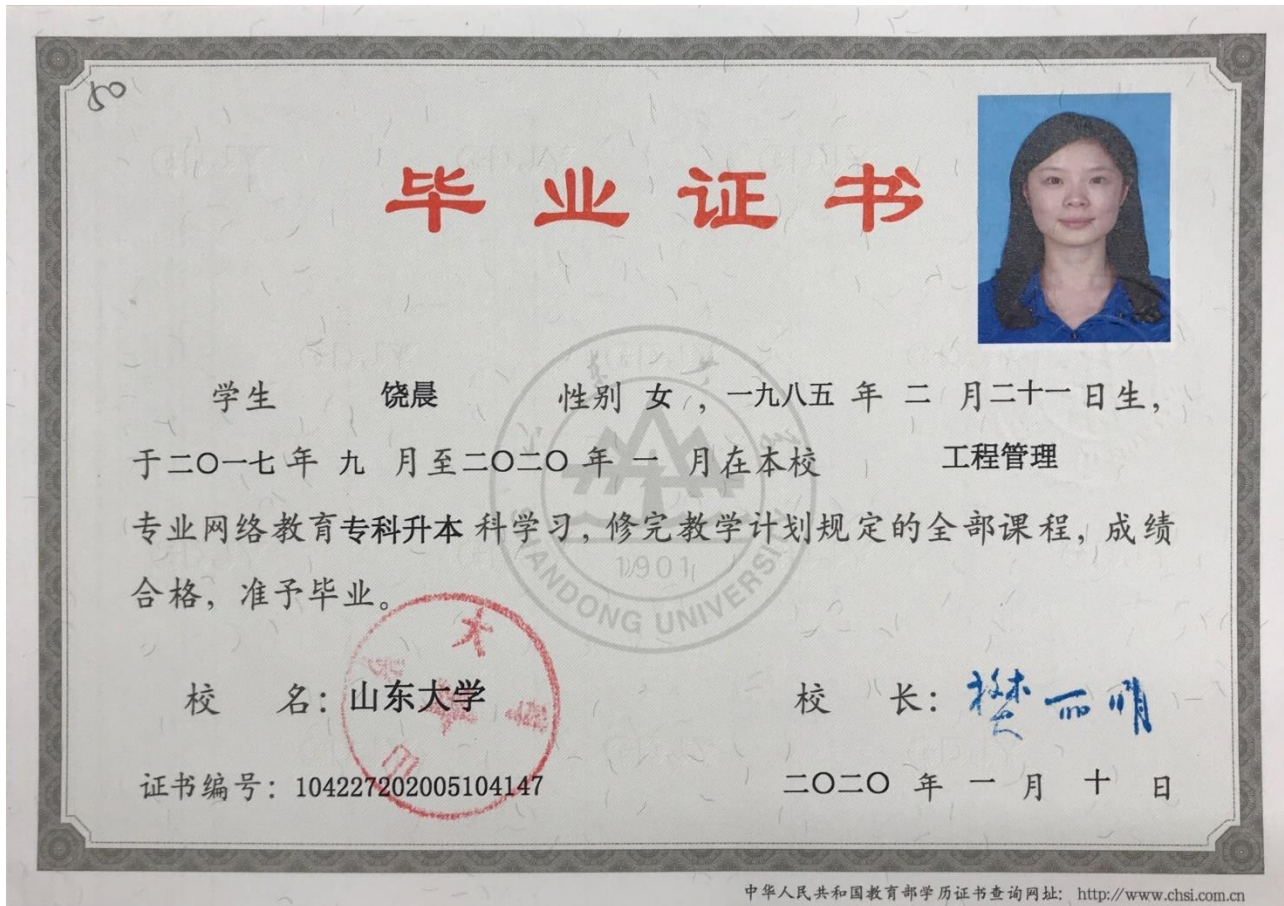 50
毕业证书
学生 饶晨 性别 女，一九八五 年 二 月二十一日生，
于二〇一七年 九 月至二〇二〇年 一 月在本校 工程管理
专业网络教育专科升本科学习，修完教学计划规定的全部课程，成绩
合格，准予毕业。
1901
SHANDONG UNIVERSITY
校 名：山东大学 校 长：樊丽明
证书编号：104227202005104147 二〇二〇 年 一 月 十 日
中华人民共和国教育部学历证书查询网址：http://www.chsi.com.cn